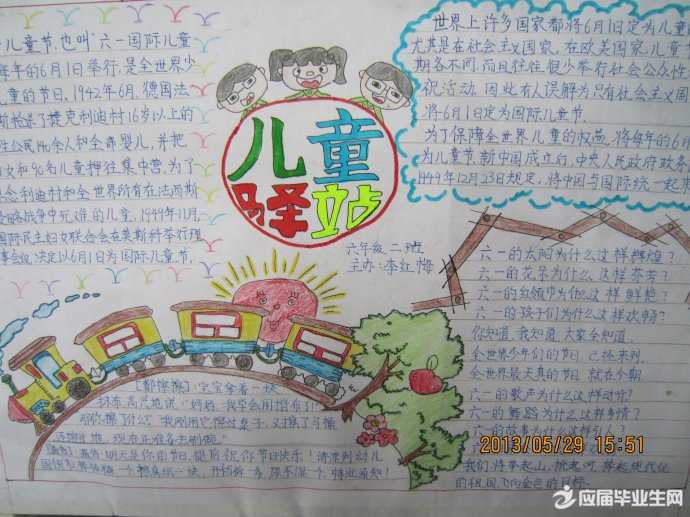 儿童节，也叫“六一国际儿童
年的6月1日举行，是全世界少
儿童的节日。1942年6月，德国法
斯枪杀了捷克利迪村16岁以上的
性公民140余人和全部婴儿，并把
女和90名儿童押往集中营。为了
念利迪村和全世界所有在法西斯
侵略战争中死难的儿童，1949年11月，
国际民主妇女联合会在莫斯科举行理
事会议，决定以6月1日为国际儿童节。
儿童
驿站
六年级 二班
主办：李红梅
世界上许多国家都将6月1日定为儿童
尤其是在社会主义国家。在欧美国家，儿童节
期各不同，而且往往很少举行社会公众性
祝活动。因此有人误解为只有社会主义国
将6月1日定为国际儿童节。
为了保障全世界儿童的权益，将每年的6月
为儿童节。新中国成立后，中央人民政府政务
1999年12月23日规定，将中国与国际统一起来
六一的太阳为什么这样辉煌？
六一的花朵为什么这样芬芳？
六一的红领巾为什么这样鲜艳？
六一的孩子们为什么这样欢畅？
你知道，我知道，大家全知道，
全世界少年们的节日 已经来到，
全世界最天真的节日 就在今朝
六一的歌声为什么这样动听？
六一的舞蹈为什么这样多情？
六一的故事为什么这样引人？
我们将带起山，挑起河，捧起现代化
的祖国飞向金色的目标。
【都擦擦】宝宝拿着一块
抹布高兴地说：“妈妈，我学会用抹布了！”
“那你擦了什么？”“我刚用它擦过桌子，又擦了
2013/05/29 15:51
应届毕业生网